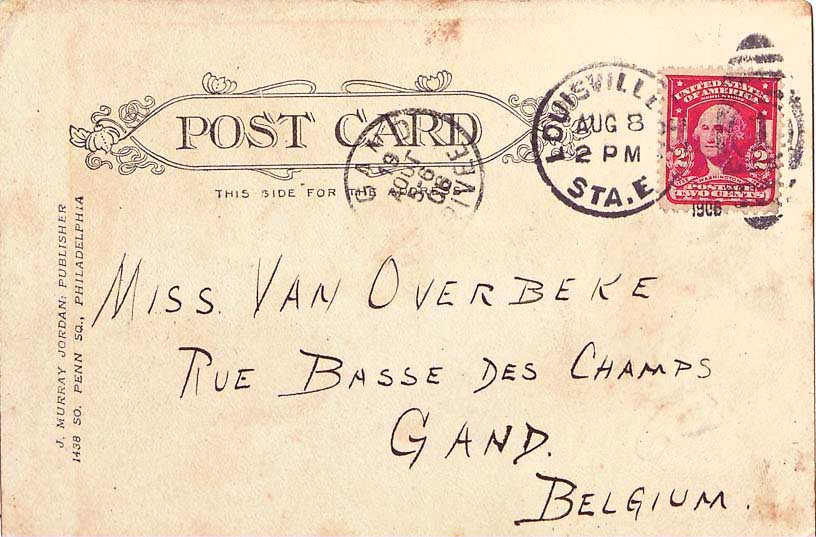 POST CARD
THIS SIDE FOR THE ADDRESS
LOUISVILLE
AUG 8
2 PM
STA. E
1906
UNITED STATES
OF AMERICA
2 2
WASHINGTON
POSTAGE
TWO CENTS
19
AOUT
5-6
1906
J. MURRAY JORDAN: PUBLISHER
1438 SO. PENN SQ., PHILADELPHIA
MISS. VAN OVERBEKE
RUE BASSE DES CHAMPS
GAND.
BELGIUM.